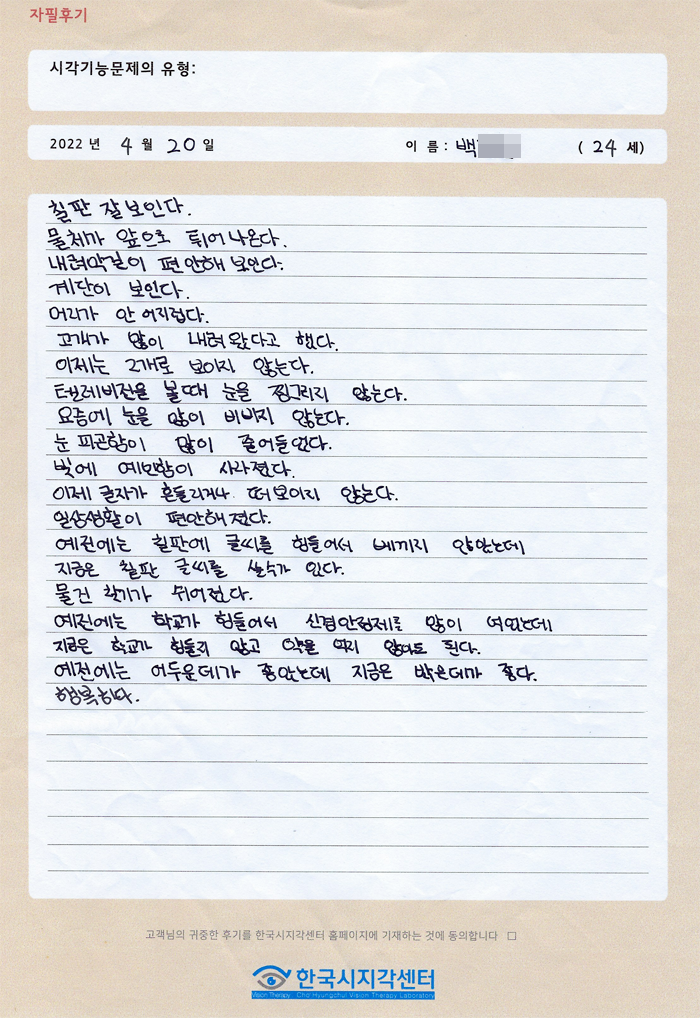 자필후기
시각기능문제의 유형:
2022 년 4 월 20 일 이 름 : 백 ( 24 세)
칠판 잘보인다.
물체가 앞으로 튀어나온다.
내려막길이 편안해 보인다.
계단이 보인다.
머리가 안 어지럽다.
고개가 많이 내려왔다고 했다.
이제는 2개로 보이지 않는다.
텔레비전을 볼때 눈을 찡그리지 않는다.
요즘에 눈을 많이 비비지 않는다.
눈 피곤함이 많이 줄어들었다.
빛에 예민함이 사라졌다.
이제 글자가 흔들리거나 떠보이지 않는다.
일상생활이 편안해졌다.
예전에는 칠판에 글씨를 힘들어서 베끼지 않았는데
지금은 칠판 글씨를 쓸수가 있다.
물건 찾기가 쉬어졌다.
예전에는 학교가 힘들어서 신경안정제를 많이 먹었는데
지금은 학교가 힘들지 않고 약을 먹지 않아도 된다.
예전에는 어두운데가 좋았는데 지금은 밝은데가 좋다.
행복하다.
고객님의 귀중한 후기를 한국시지각센터 홈페이지에 기재하는 것에 동의합니다 □
한국시지각센터
Vision Therapy Cho Hyungchul Vision Therapy Laboratory